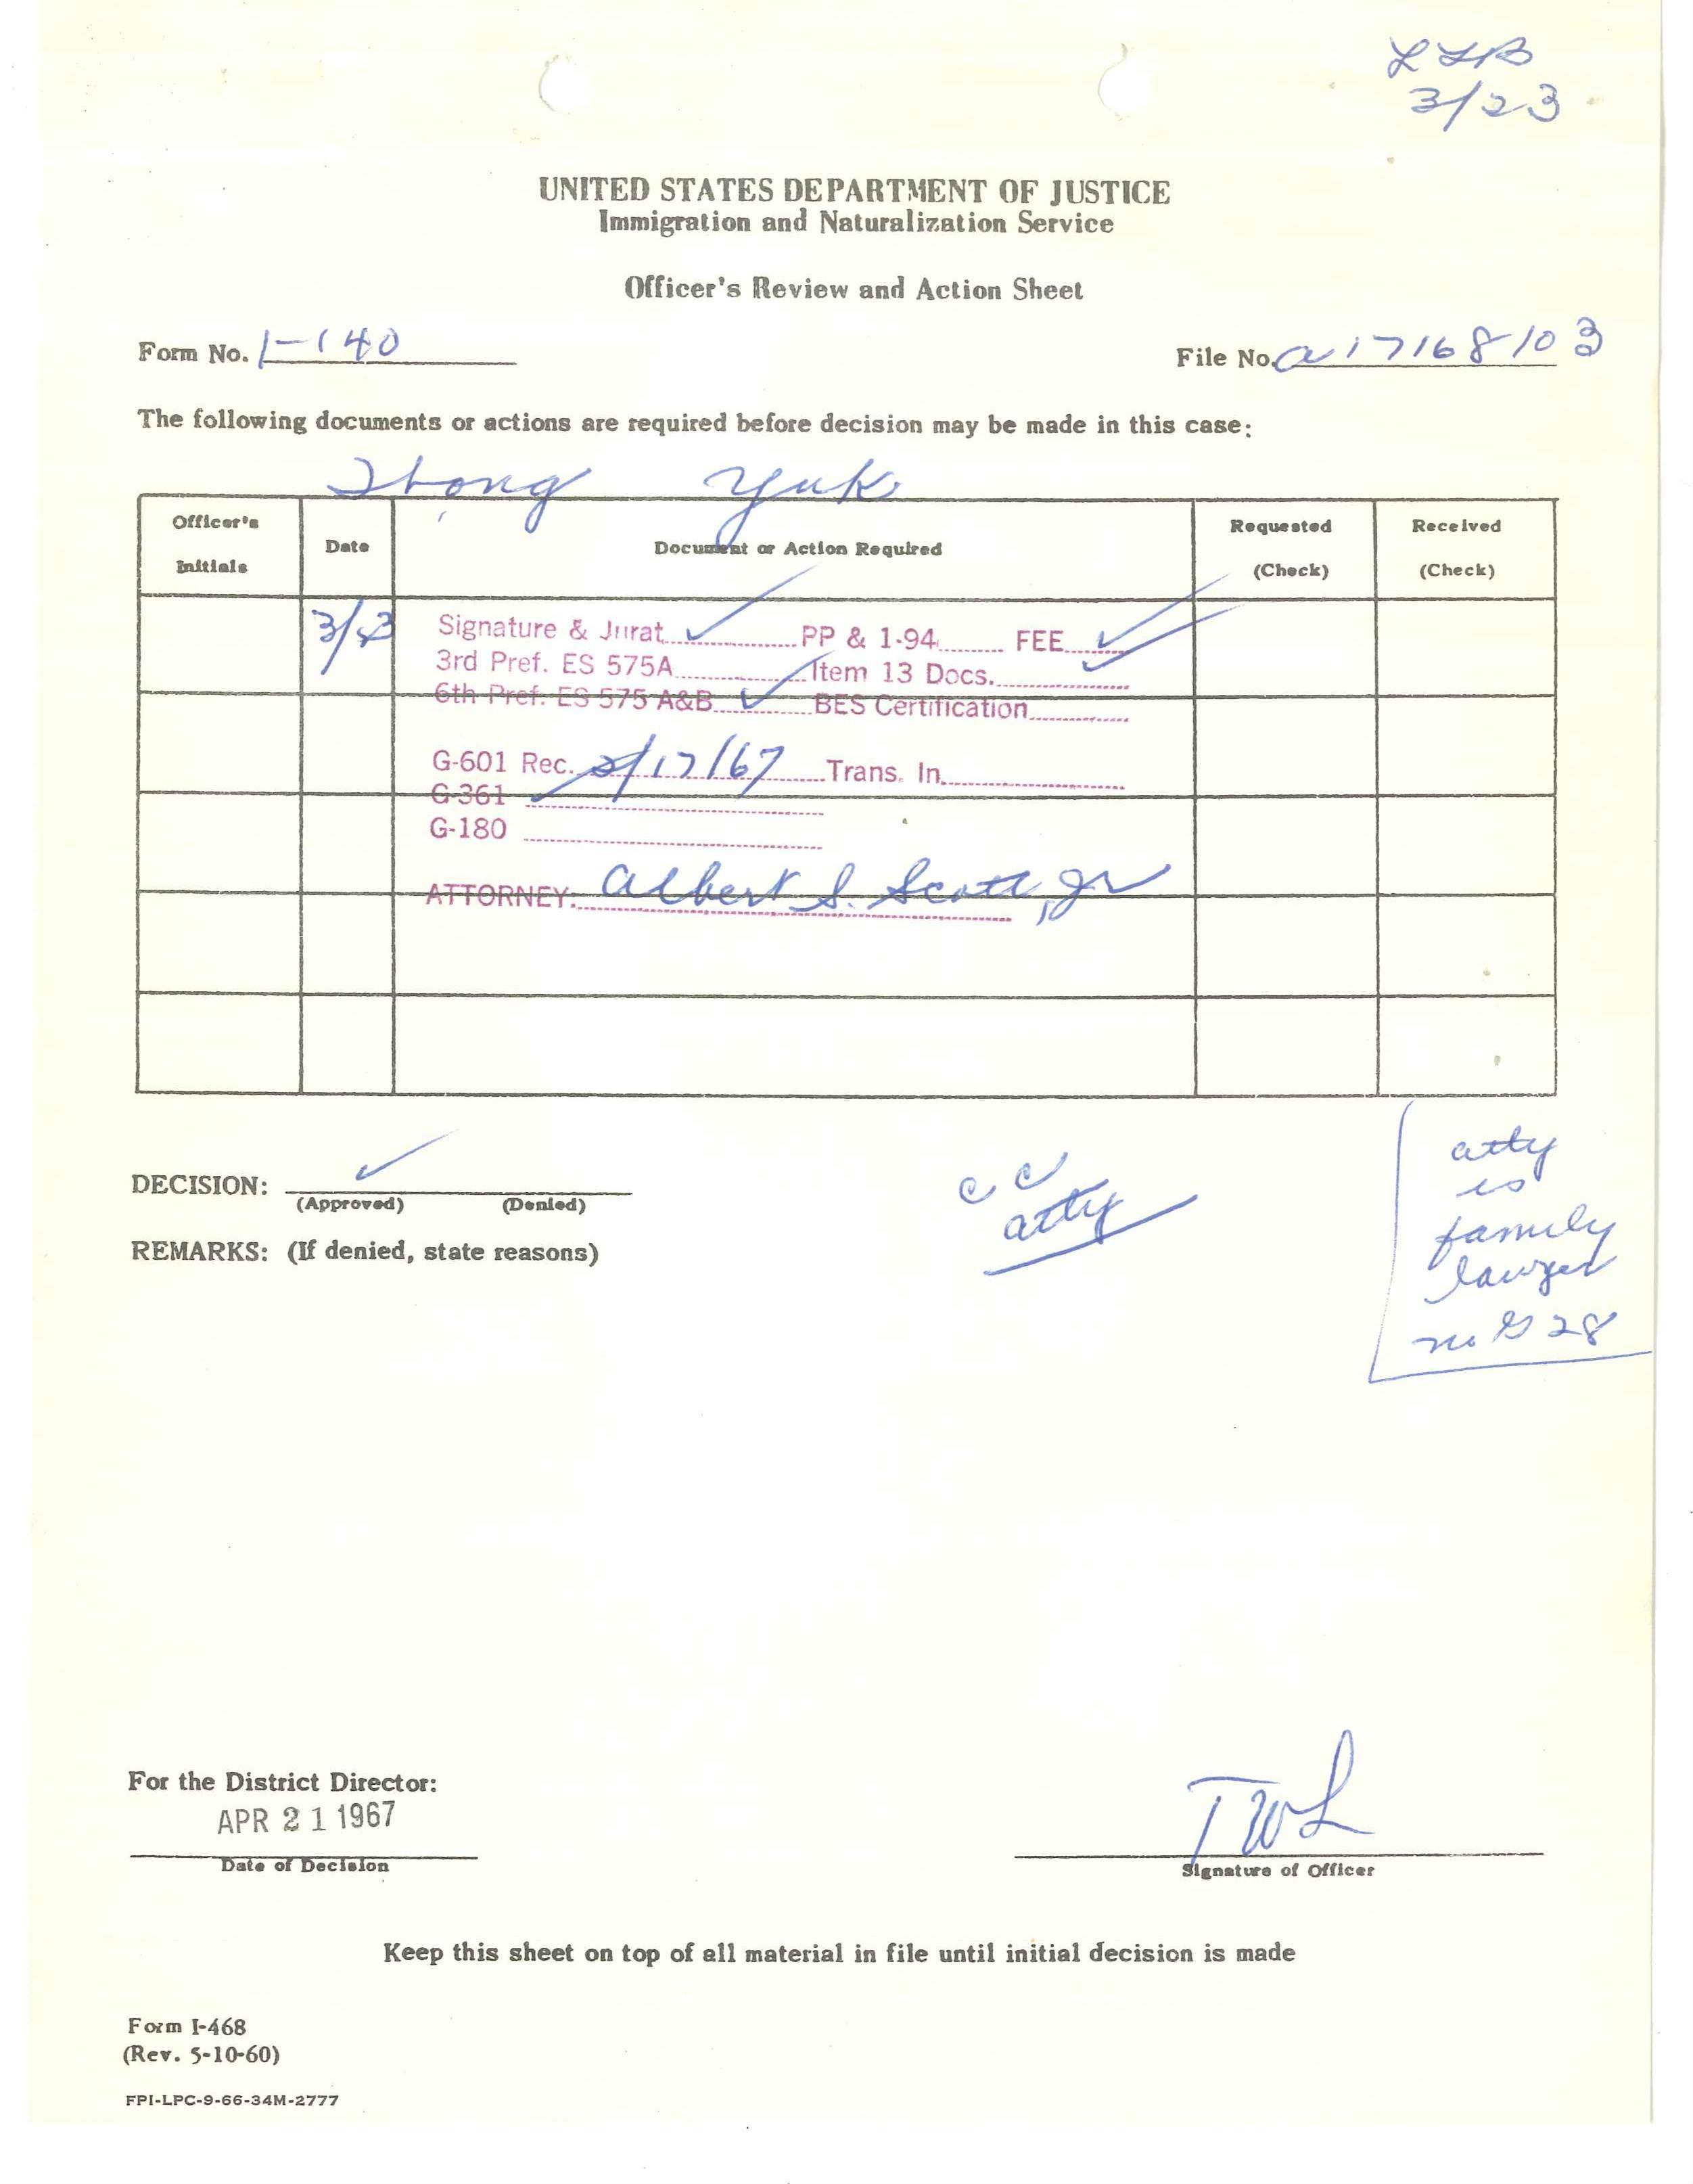 LLB
3/23
UNITED STATES DEPARTMENT OF JUSTICE
Immigration and Naturalization Service
Officer's Review and Action Sheet
Form No. I-140
File No. a17168103
The following documents or actions are required before decision may be made in this case:
Yuk
Officer's Initials Date Document or Action Required Requested (Check) Received (Check)
3/23 Signature & Jurat ✓ PP & 1-94 FEE ✓
3rd Pref. ES 575A Item 13 Docs. ✓
6th Pref. ES 575 A&B ✓ BES Certification
G-601 Rec. 2/17/67 Trans. In
G-361 ✓
G-180
ATTORNEY: Albert S. Scott, Jr
DECISION: ✓
(Approved) (Denied)
REMARKS: (If denied, state reasons)
cc
atty
atty
is
family
lawyer
no G 28
For the District Director:
APR 21 1967
Date of Decision
TWL
Signature of Officer
Keep this sheet on top of all material in file until initial decision is made
Form I-468
(Rev. 5-10-60)
FPI-LPC-9-66-34M-2777